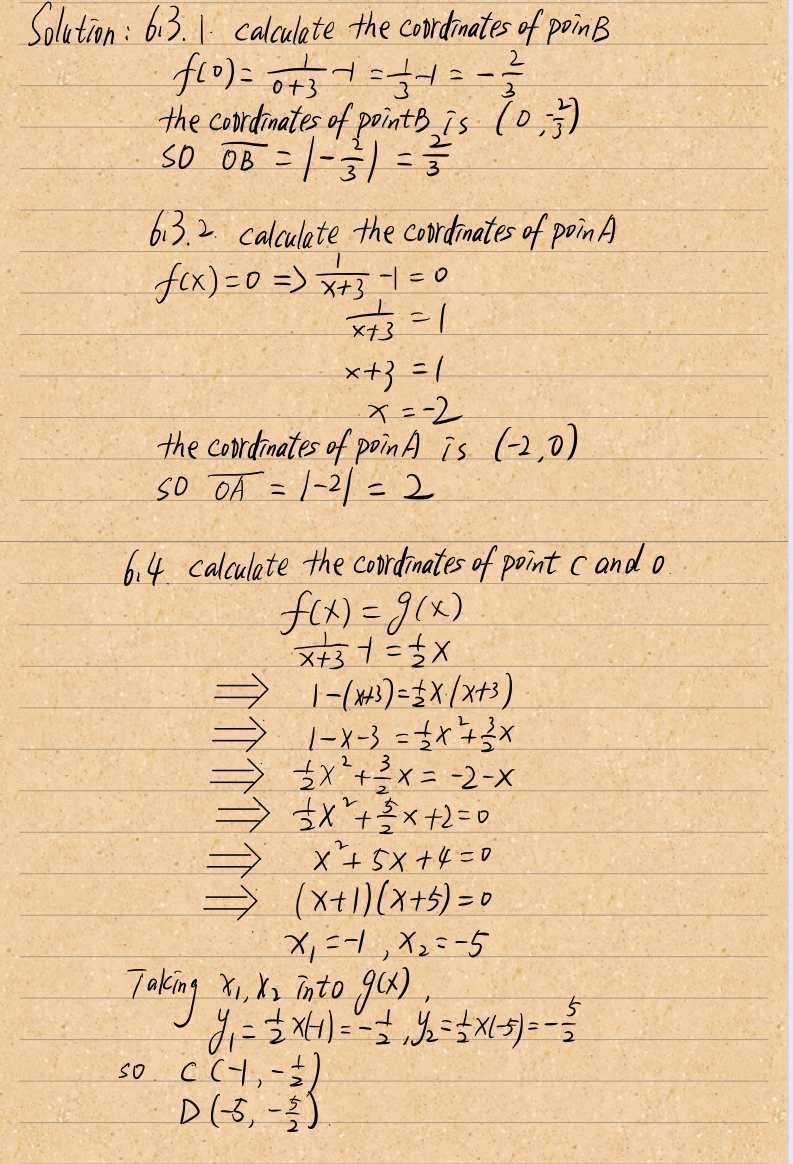 Solution: 6.3.1. calculate the coordinates of poinB
f(0) = 1/(0+3) -1 = 1/3 -1 = -2/3
the coordinates of pointB is (0, -2/3)
so O̅B̅ = |-2/3| = 2/3
6.3.2. calculate the coordinates of poinA
f(x) = 0 => 1/(x+3) -1 = 0
1/(x+3) = 1
x+3 = 1
x = -2
the coordinates of poinA is (-2, 0)
so O̅A̅ = |-2| = 2
6.4. calculate the coordinates of point C and D
f(x) = g(x)
1/(x+3) -1 = 1/2 x
⟹ 1-(x+3) = 1/2 x (x+3)
⟹ 1-x-3 = 1/2 x² + 3/2 x
⟹ 1/2 x² + 3/2 x = -2-x
⟹ 1/2 x² + 5/2 x + 2 = 0
⟹ x² + 5x + 4 = 0
⟹ (x+1)(x+5) = 0
x₁ = -1, x₂ = -5
Taking x₁, x₂ into g(x),
y₁ = 1/2 ×(-1) = -1/2, y₂ = 1/2 ×(-5) = -5/2
so C(-1, -1/2)
D(-5, -5/2).